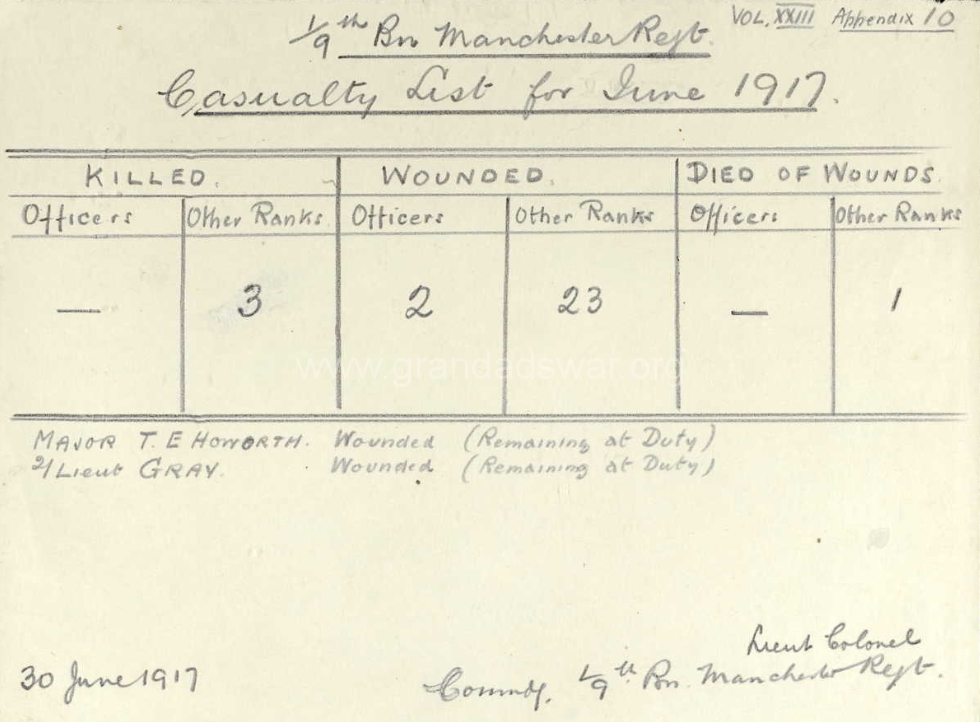 VOL. XXIII Appendix 10
1/9th Bn Manchester Regt.
Casualty List for June 1917.
KILLED. WOUNDED. DIED OF WOUNDS.
Officers Other Ranks Officers Other Ranks Officers Other Ranks
— 3 2 23 — 1
www.grandadswar.org
MAJOR T. E HOWORTH. Wounded (Remaining at Duty)
2/Lieut GRAY. Wounded (Remaining at Duty)
Lieut Colonel
30 June 1917 Commdg. 1/9th Bn. Manchester Regt.